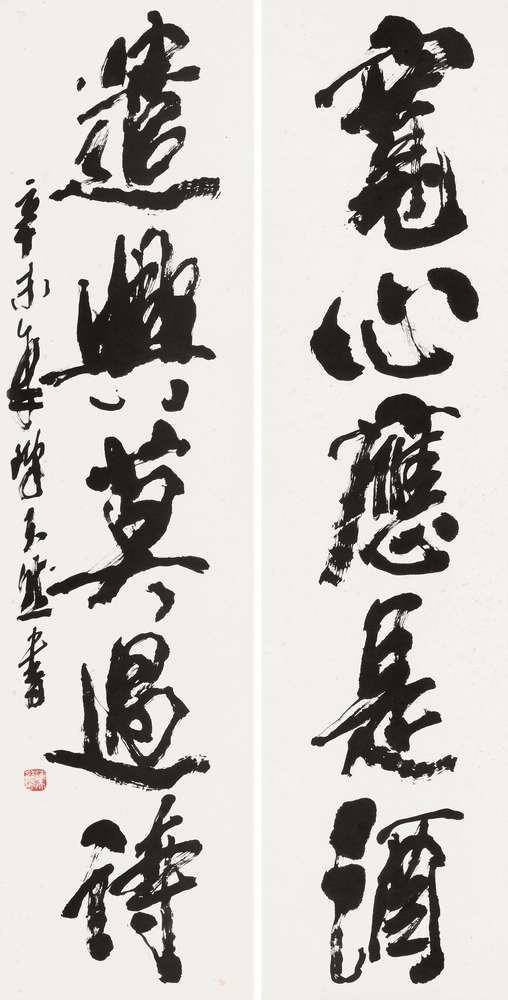 寬心應是酒
遣興莫過詩
辛未年陳天然書